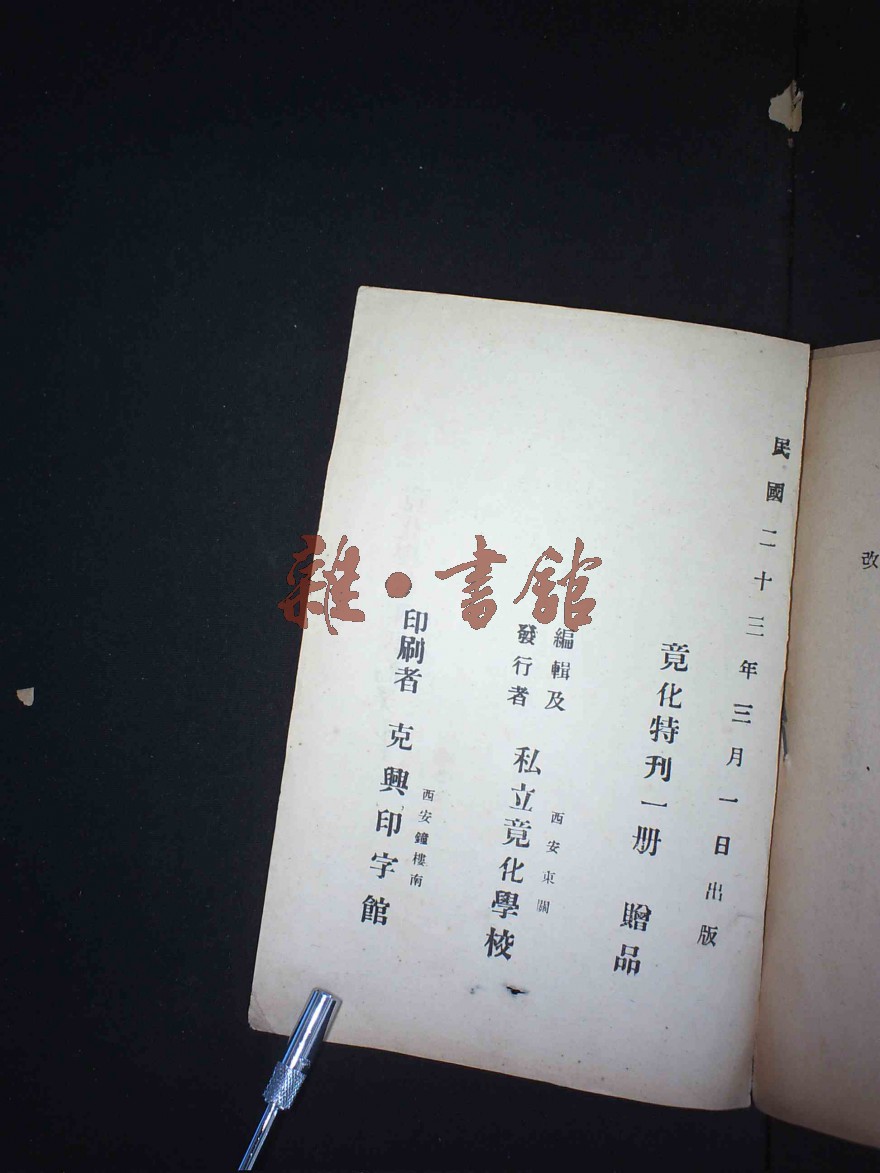 民國二十三年三月一日出版
竟化特刊一册 贈品
編輯及
發行者
西安東關
私立竟化學校
西安鐘樓南
印刷者 克興印字館
改
雜·書館